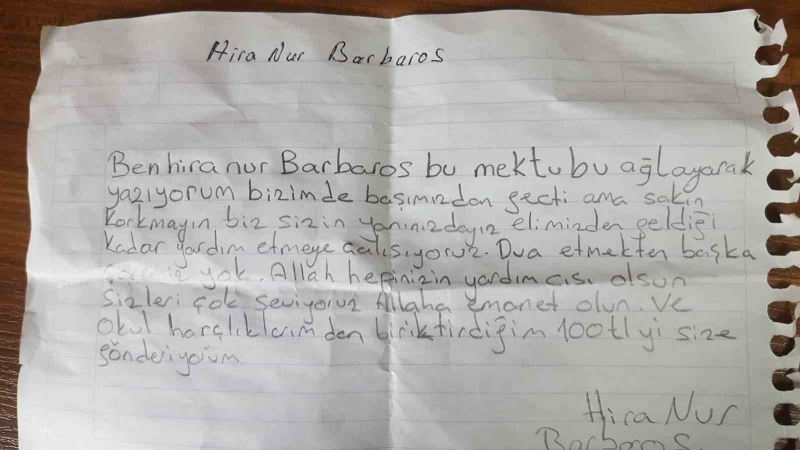 Hira Nur Barbaros
Ben hira nur Barbaros bu mektubu ağlayarak
yazıyorum bizimde başımızdan geçti ama sakın
korkmayın biz sizin yanınızdayız elimizden geldiği
kadar yardım etmeye çalışıyoruz. Dua etmekten başka
yok. Allah hepinizin yardımcısı olsun
Sizleri çok seviyoruz Allaha emanet olun. Ve
okul harçlıklarımdan biriktirdiğim 100tl yi size
gönderiyorum
Hira Nur
Barbaros.